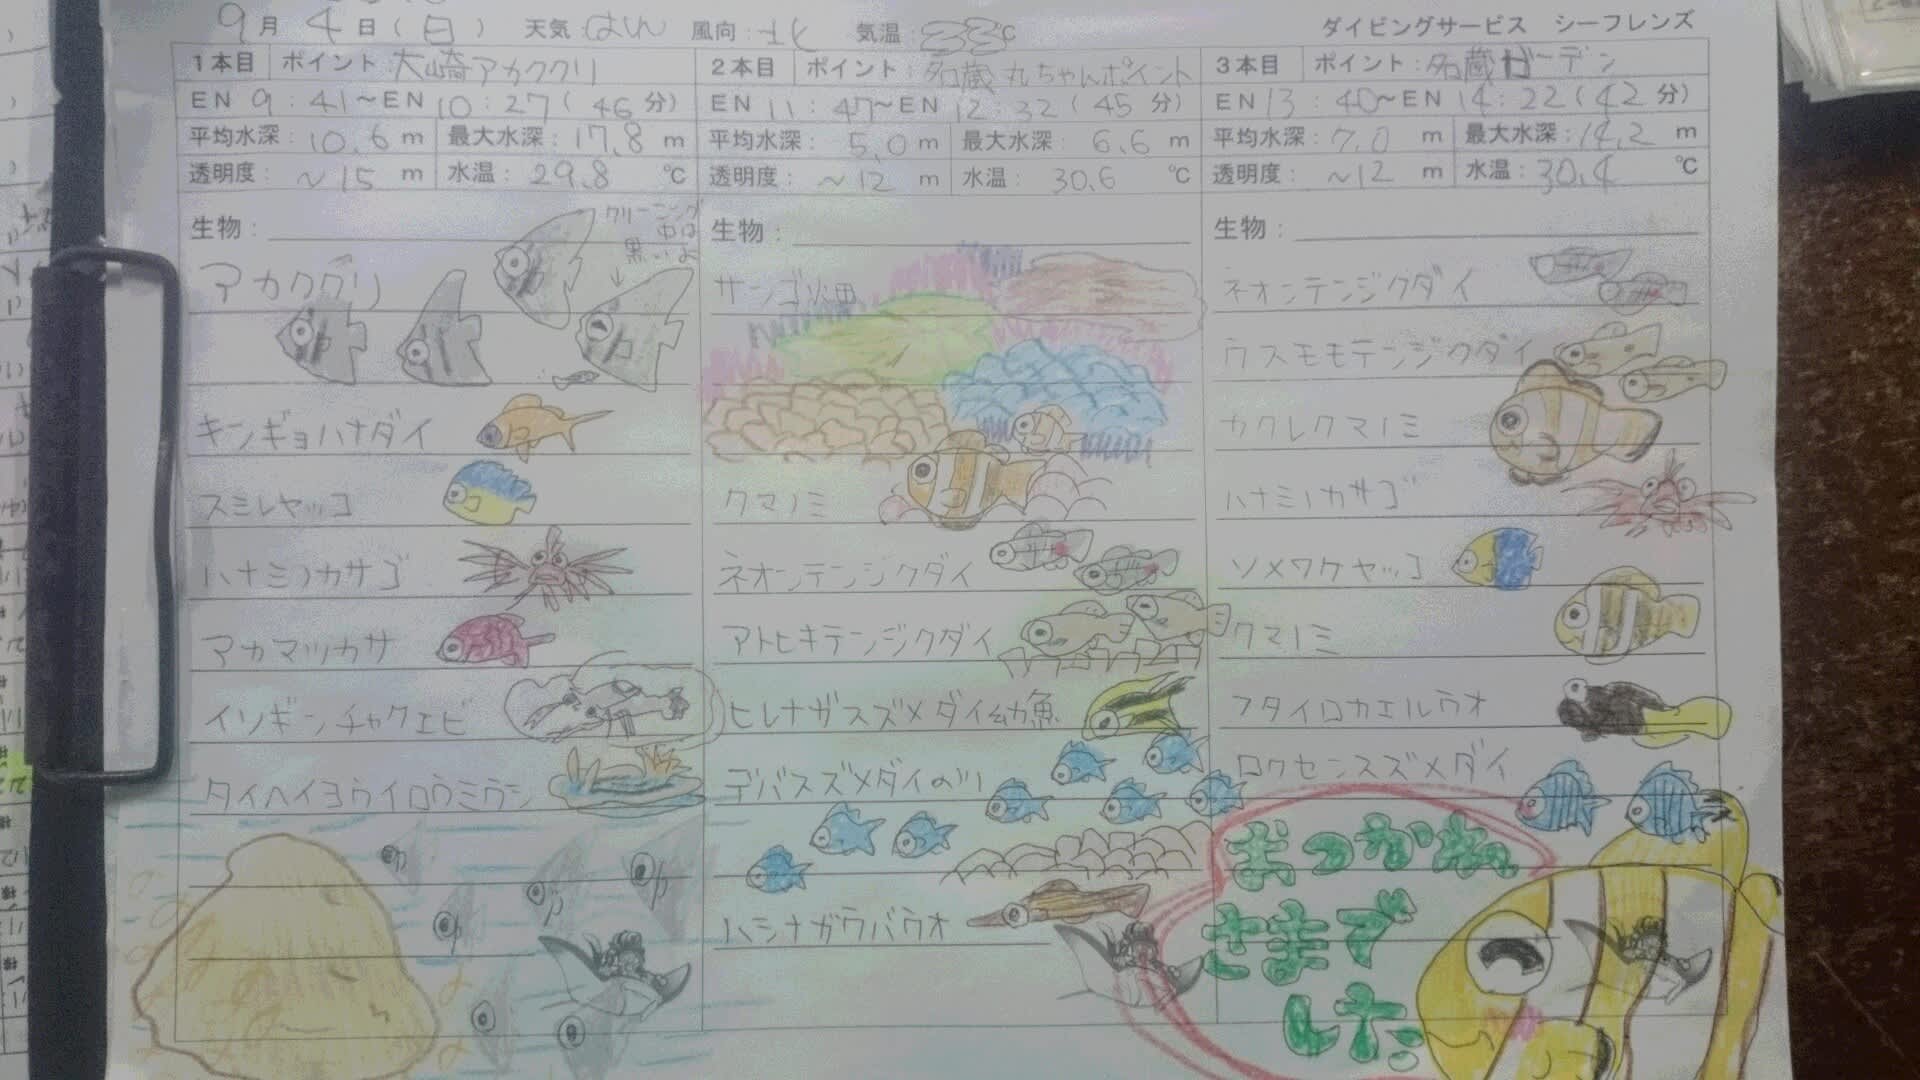 9月 4日(日) 天気 はれ 風向:北 気温:33℃ ダイビングサービス シーフレンズ
1本目 ポイント 大崎アカククリ
EN 9:41~EN 10:27(46分)
平均水深:10.6m 最大水深:17.8m
透明度:~15m 水温:29.8℃
生物:
クリーニング
中は
黒いよ
アカククリ
キンギョハナダイ
スミレヤッコ
ハナミノカサゴ
アカマツカサ
イソギンチャクエビ
タイヘイヨウイロウミウシ
2本目 ポイント:名蔵 丸ちゃんポイント
EN 11:47~EN 12:32(45分)
平均水深:5.0m 最大水深:6.6m
透明度:~12m 水温:30.6℃
生物:
サンゴ畑
クマノミ
ネオンテンジクダイ
アトヒキテンジクダイ
ヒレナガスズメダイ幼魚
デバスズメダイの
ハシナガウバウオ
3本目 ポイント:名蔵ガーデン
EN 13:40~EN 14:22(42分)
平均水深:7.0m 最大水深:14.2m
透明度:~12m 水温:30.4℃
生物:
ネオンテンジクダイ
ウスモモテンジクダイ
カクレクマノミ
ハナミノカサゴ
ソメワケヤッコ
クマノミ
フタイロカエルウオ
ロクセンスズメダイ
おつかれ
さまで
した